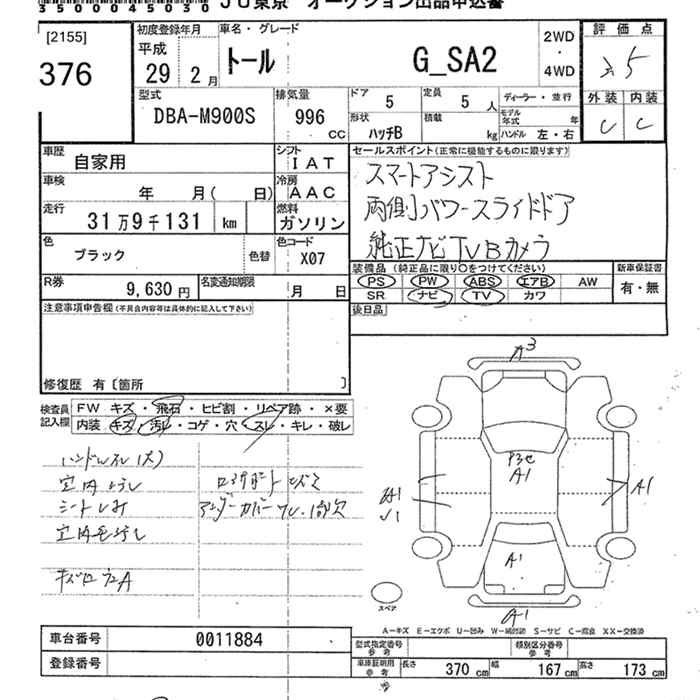 35000045030 JU東京 オークション出品申込書
[2155]
376
初度登録年月
平成
29 年 2 月
車名・グレード
トール G_SA2
2WD
・
4WD
評価点
3.5
外装 内装
C C
型式
DBA-M900S
排気量
996 CC
ドア 5
定員 5 人
ディーラー・並行
モデル年式 年
形状 ハッチB
積載 kg
ハンドル 左・右
車歴 自家用
シフト IAT
車検 年 月( 日)
冷房 AAC
走行 31万9千131 km
燃料 ガソリン
色 ブラック 色替
色コード X07
R券 9,630 円
名変通知期限 月 日
セールスポイント(正常に機能するものに限ります)
スマートアシスト
両側パワースライドドア
純正ナビTVBカメラ
装備品(純正品に限り○をつけてください)
新車保証書
PS PW ABS エアB AW
有・無
SR ナビ TV カワ
後日品
注意事項申告欄(不具合内容等は具体的に記入して下さい)
修復歴 有〔箇所 〕
検査員記入欄
FW キズ・飛石・ヒビ割・リペア跡・×要
内装 キズ・汚レ・コゲ・穴・スレ・キレ・破レ
ハンドルスレ(大)
室内ヨゴレ
シートシミ
アンダーカバーワレ・1部欠
A3
A1
A1
A1
A1
スペア
A-キズ E-エクボ U-凹み W-補修跡 S-サビ C-腐食 XX-交換済
車台番号 0011884
登録番号
型式指定番号 参考
類別区分番号 参考
車庫証明用 参考
長さ 370 cm
幅 167 cm
高さ 173 cm